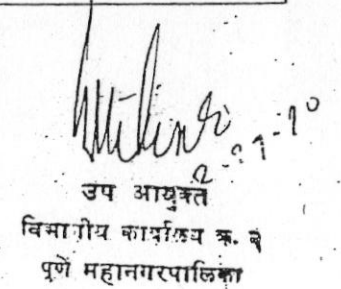 उप आयुक्त
विभागीय कार्यालय क्र. २
पुणे महानगरपालिका